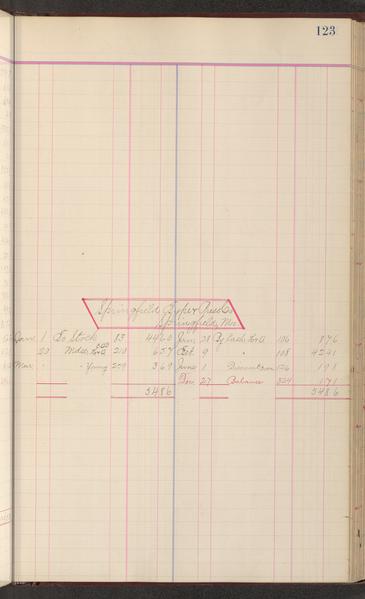 123
Springfield Paper
Springfield, Mo.
Jan. 1 To Stock 83 4460 Jan 28 By Cash 106 876
23 Mdse 210 657 Feb. 9 " 108 4241
Mar " " Young 279 369 June 1 Discount 191
Dec 27 Balance 324 171
5486 5486